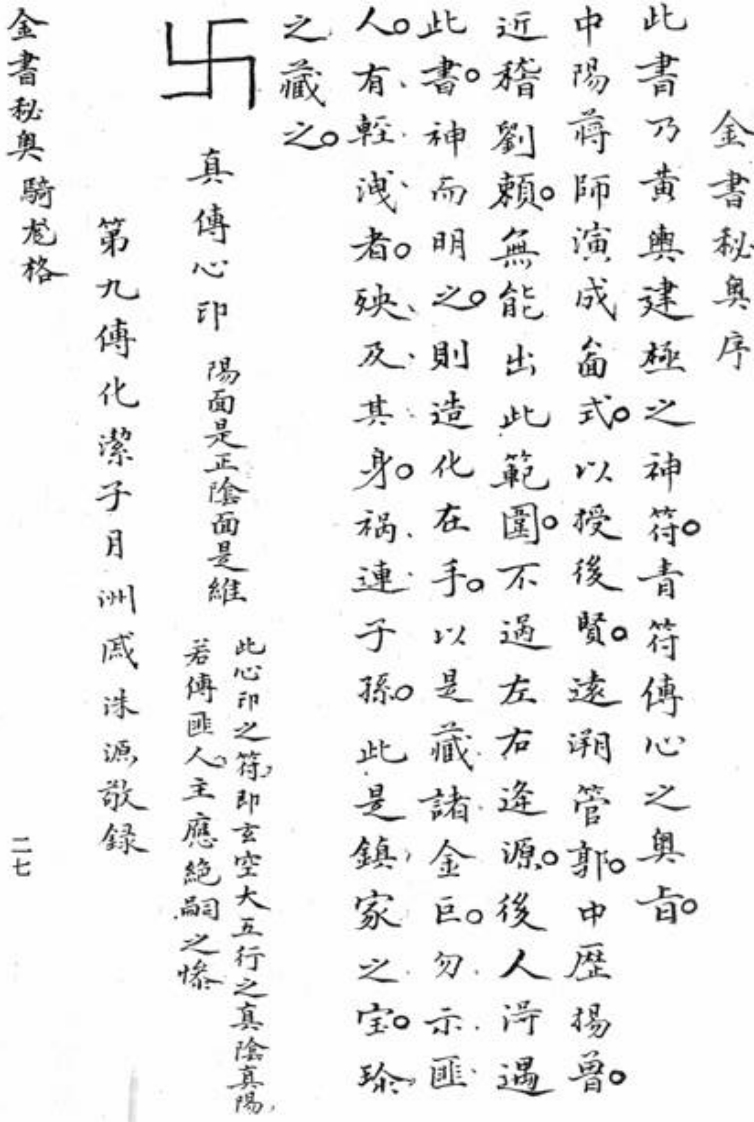 金書秘奥序
此書乃黃輿建極之神符。青符傳心之奥旨。
中陽蔣師演成畣式。以授後賢。遠溯管郭。中歷楊曾。
近稽劉賴。無能出此範圍。不過左右逢源。後人淂遇
此書。神而明之。則造化在手。以是藏諸金匠。勿示匪
人。有輕洩者。殃及其身。祸連子孫。此是鎮家之宝。珍
之藏之。
卐
真傳心印 陽面是正陰面是維
此心印之符,即玄空大五行之真陰真陽,
若傳匪人,主應絶嗣之慘
第九傳化潔子月洲戚洙源敬録
金書秘奥 騎龙格
二七